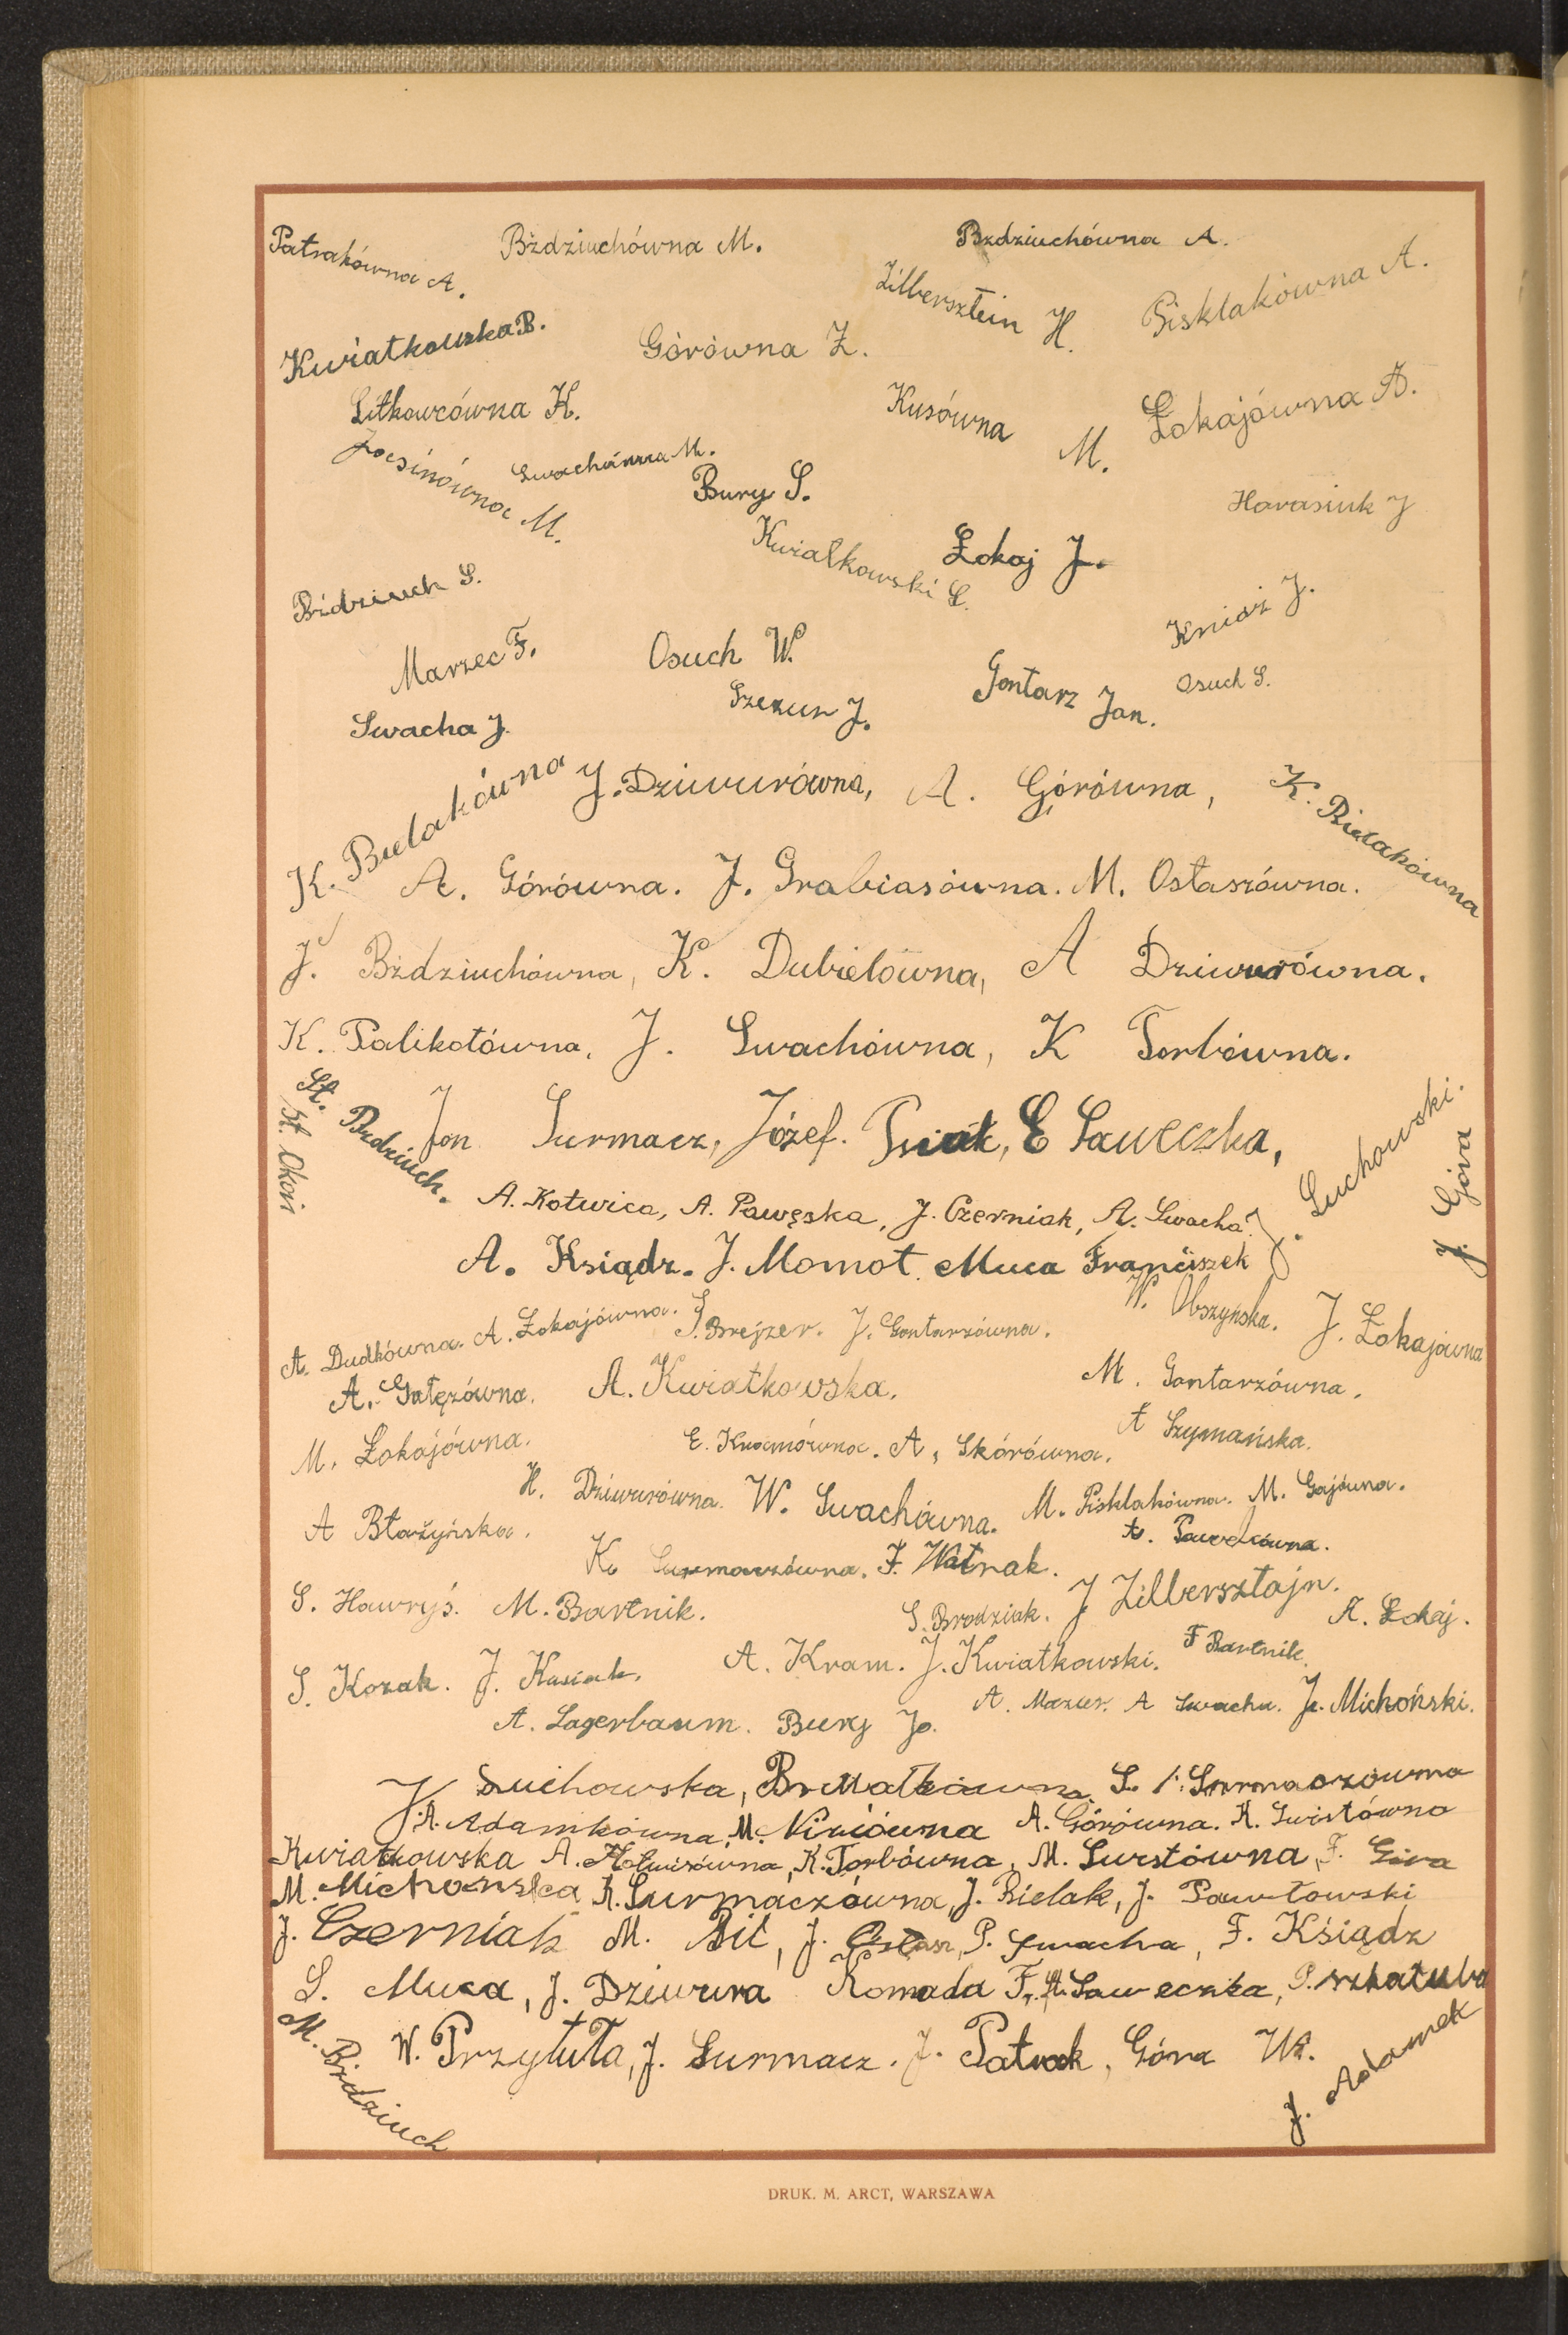 Patrakówna A.
Bździuchówna M.
Bzdziuchówna A.
Zilbersztein H.
Pisklakówna A.
Kwiatkowska B.
Górówna Z.
Litkowcówna K.
Kusówna M.
Łokajówna A.
Swachówna M.
Bury S.
Harasiuk J
Kwiatkowski S.
Łokaj J.
Bździuch S.
Kniaź J.
Marzec F.
Osuch W.
Gontarz Jan.
Osuch S.
Swacha J.
Szezun J.
K. Bielakówna
J. Dziwurówna, A. Górówna,
K. Bielakówna
A. Górówna. J. Grabiasówna. M. Ostaszówna.
J. Bździuchówna, K. Dubielówna, A Dziwurówna.
K. Palikotówna, J. Swachówna, K Torbówna.
St. Bzdziuch.
St. Okoń
Jan Surmacz, Józef. Psiuk, E Saweczka,
J. Suchowski.
J. Góra
A. Kotwica, A. Pawęska, J. Czerniak, A. Swacha
A. Ksiądz. J. Momot. Muca Franciszek
A. Dudkówna. A. Łokajówna. S. Brejzer. J. Gontarzówna.
W. Obszyńska. J. Łokajówna
A. Gałęzówna. A. Kwiatkowska. M. Gontarzówna.
M. Łokajówna. E. Knocmówna. A. Skórówna. A Szymańska.
H. Dziwurówna. W. Swachówna. M. Pisklakówna. M. Gajówna.
A Błażyńska. A. Pawelcówna.
K. Surmaczówna. F. Watrak.
S. Hawryś. M. Bartnik. S. Brodziak. J Zilbersztajn. A. Łokaj.
S. Kozak. J. Kusiak. A. Kram. J. Kwiatkowski. F Bartnik.
A. Lagerbaum. Bury Jo. A. Mazur. A Swacha. J. Michoński.
J Suchowska, S. Surmaczówna
A. Adamkówna, M. Niziówna A. Górówna. A. Swistówna
Kwiatkowska A. K. Torbówna, M. Swistówna, F. Góra
M. Michońska, A. Surmaczówna, J. Bielak, J. Pawłowski
J. Czerniak M. Bil, J. Ostasz, P. Swacha, F. Ksiądz
S. Muca, J. Dziwura Komada F., A. Saweczka, P. szkatuła
M. Bździuch
W. Przytuła, J. Surmacz. J. Patrak, Góra Wł.
J. Adamek
DRUK. M. ARCT, WARSZAWA